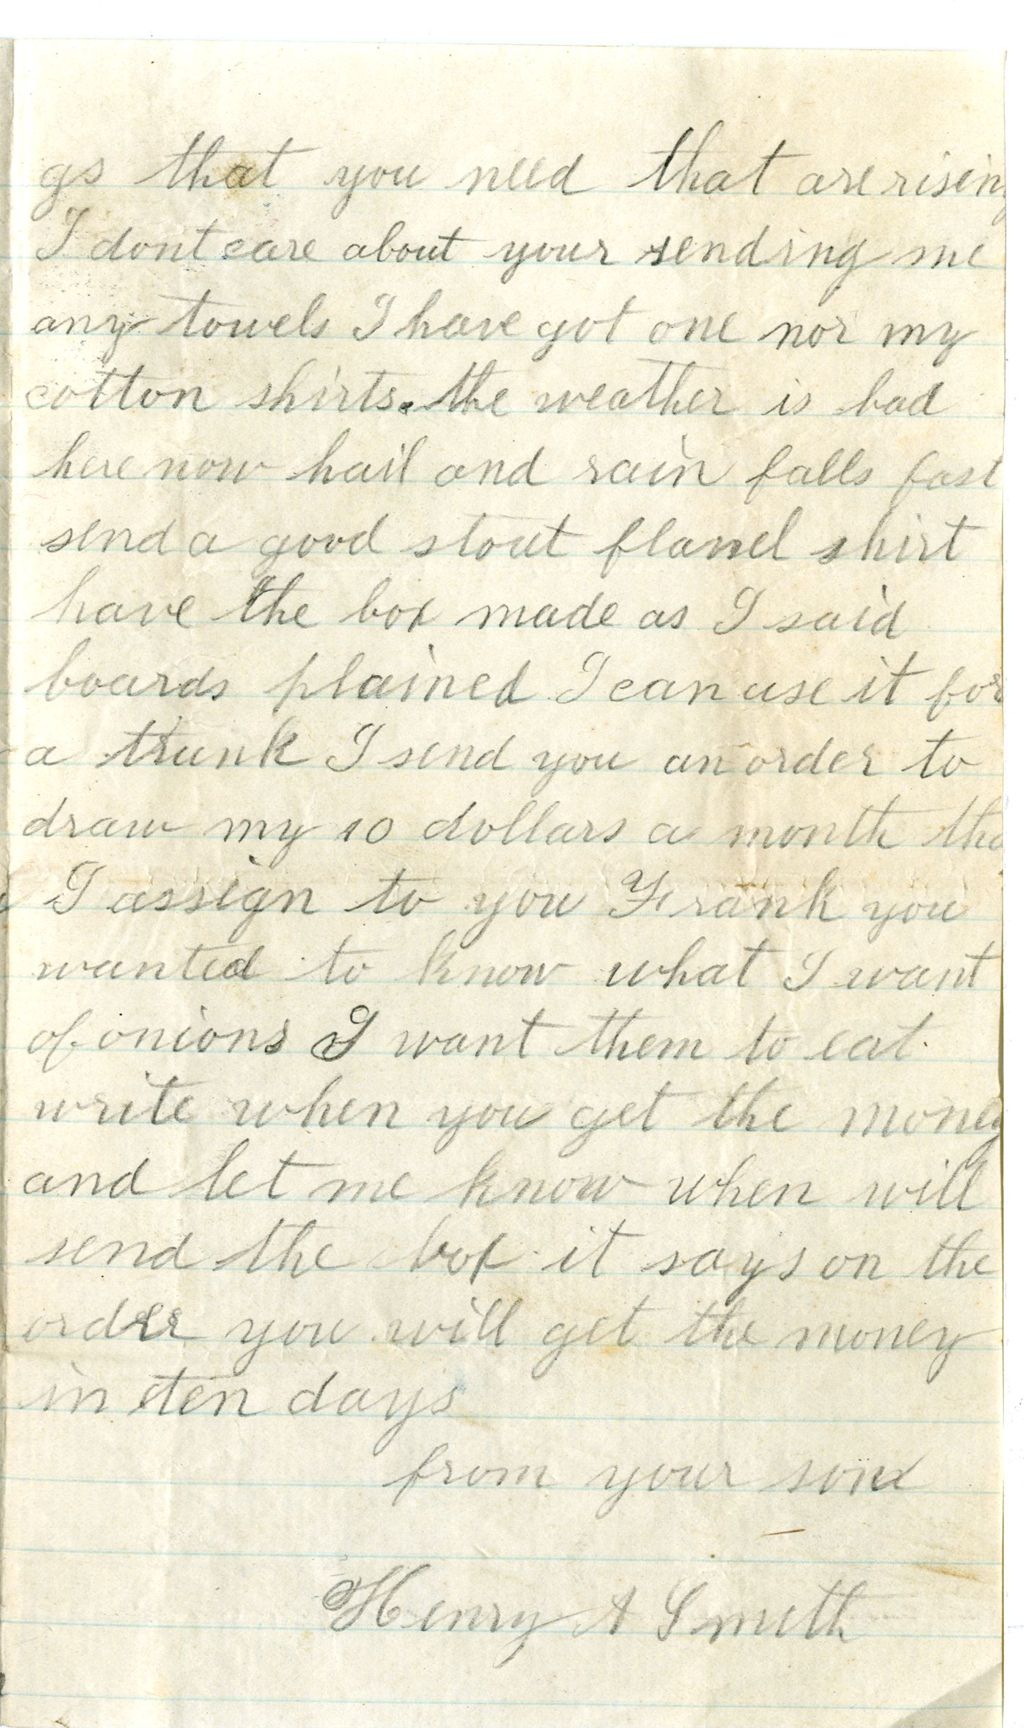 gs that you need that are risin
I dont care about your sending me
any towels I have got one nor my
cotton shirts. the weather is bad
here now hail and rain falls fast
send a good stout flanel shirt
have the box made as I said
boards plained I can use it for
a trunk I send you an order to
draw my 10 dollars a month tha
I assign to you Frank you
wanted to know what I want
of onions I want them to eat.
write when you get the money
and let me know when will
send the box it says on the
order you will get the money
in ten days
from your son
Henry A Smith